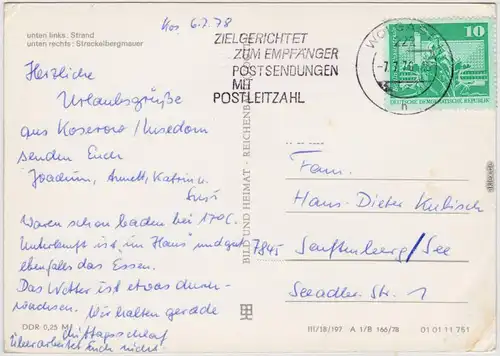 unten links: Strand
unten rechts: Streckelbergmauer
Kos. 6.7.78
Herzliche
Urlaubsgrüße
aus Koserow/Usedom
senden Euch
Joachim, Annett, Katrin u.
Waren schon baden bei 17°C.
Unterkunft ist "im Haus" und gut
ebenfalls das Essen.
Das Wetter ist etwas durch-
wachsen. Wir halten gerade
Mittagsschlaf
überarbeitet Euch nicht.
DDR 0,25 M
ZIELGERICHTET
ZUM EMPFÄNGER
POSTSENDUNGEN
MIT
POSTLEITZAHL
WOLGAST
222
-7.7.78
n
10
DEUTSCHE DEMOKRATISCHE REPUBLIK
BILD UND HEIMAT · REICHENBACH
Fam.
Hans-Dieter Kubisch
7845 Senftenberg/See
Seeadler-Str. 1
III/18/197 A 1/B 166/78 01 01 11 751